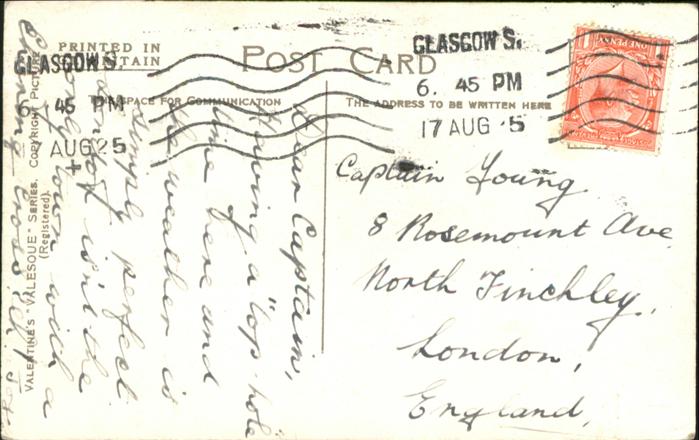 PRINTED IN
BRITAIN
POST CARD
GLASGOW S.
6 45 PM
AUG 25
GLASGOW S.
6. 45 PM
17 AUG 5
ONE PENNY
SPACE FOR COMMUNICATION
THE ADDRESS TO BE WRITTEN HERE
VALENTINE'S "VALESQUE" SERIES. COPYRIGHT PICTURE
(Registered).
Dear Captain,
Having a "top-hole"
time here and
the weather is
simply perfect
isn't the
only town with a
Captain Young
8 Rosemount Ave
North Finchley,
London,
England,